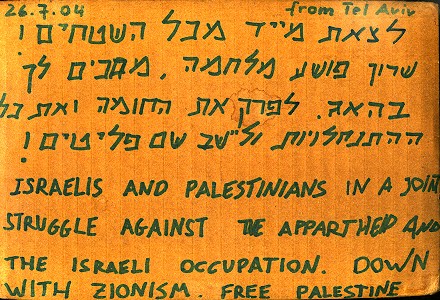 26.7.04 from Tel Aviv
לצאת מייד מכל השטחים!
שרון פושע מלחמה, מחכים לך
בהאג. לפרק את החומה ואת כל
ההתנחלויות ול"שב שם פליטים!
ISRAELIS AND PALESTINIANS IN A JOINT
STRUGGLE AGAINST THE APPARTHEID AND
THE ISRAELI OCCUPATION. DOWN
WITH ZIONISM. FREE PALESTINE